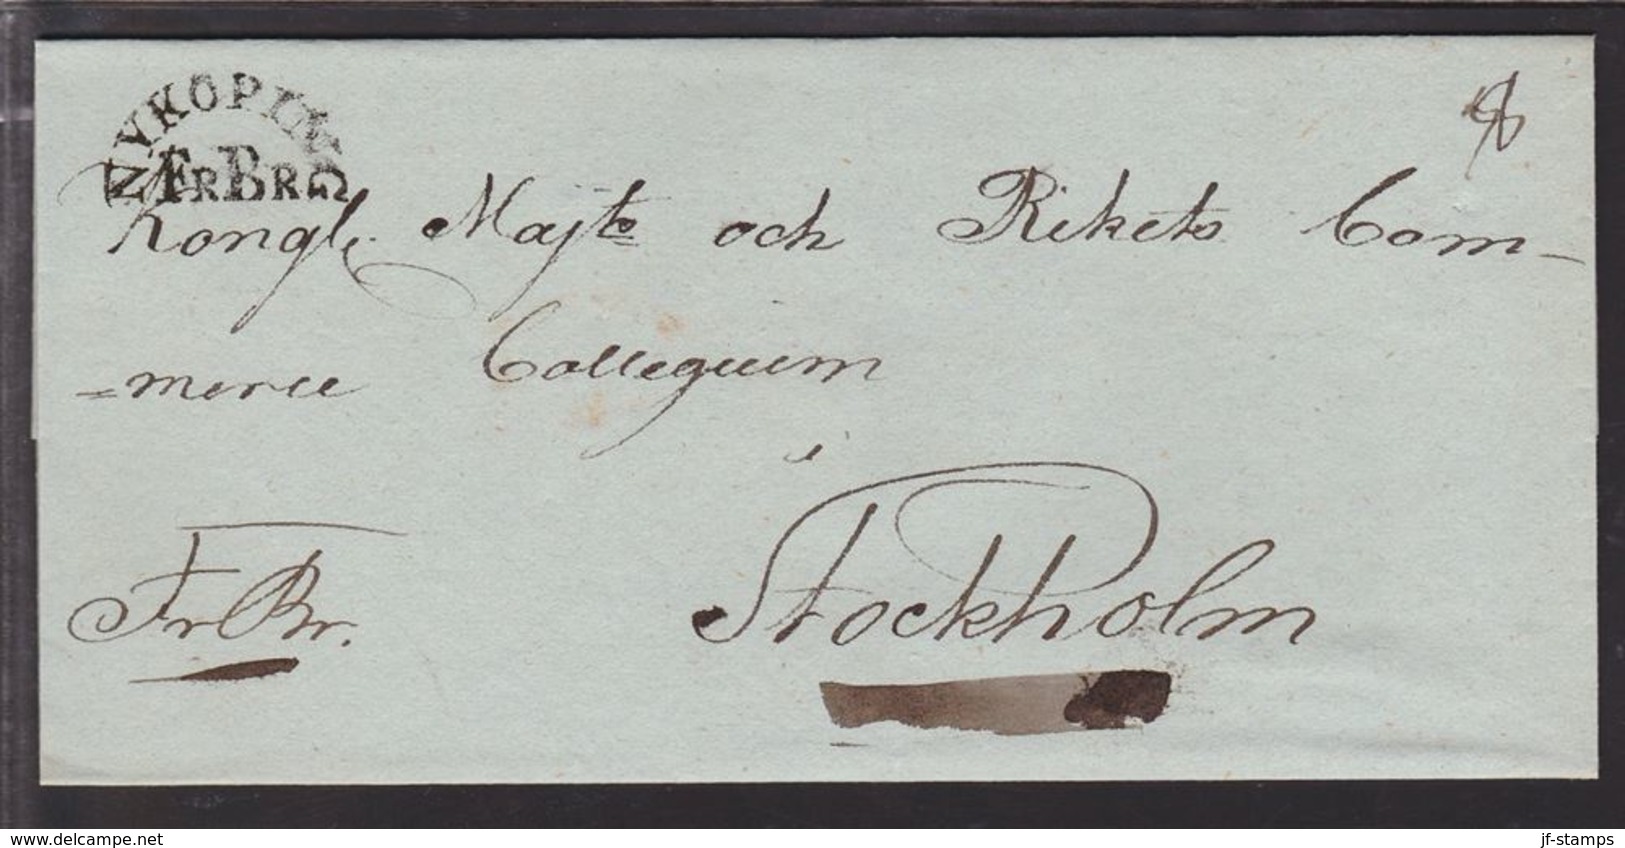 NYKÖPING
FR BR
Kongl. Majts och Rikets Com-
=merce Collegium
i
Stockholm
Fr Br.
delcampe.net
jf-stamps